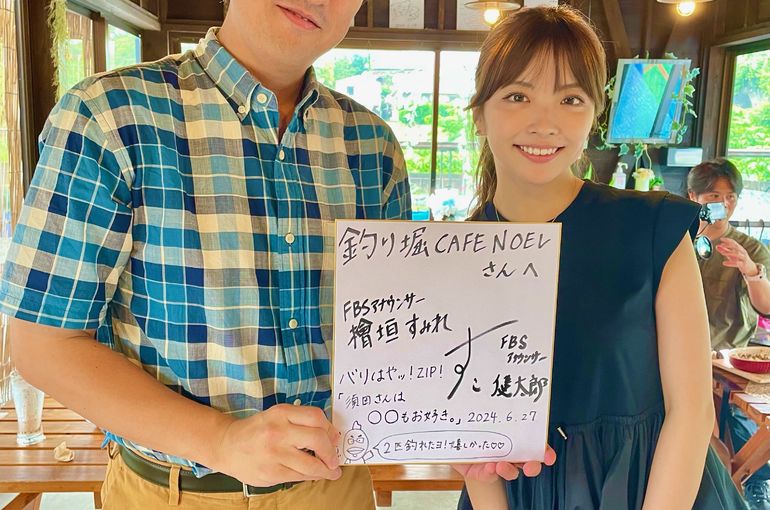 釣り堀 CAFE NOEL
さんへ
FBSアナウンサー
檜垣すみれ
FBS
アナウンサー
すこ 健太郎
バリはやッ!ZIP!
「須田さんは
○○もお好き。」2024.6.27
2匹釣れたヨ!嬉しかった♡♡